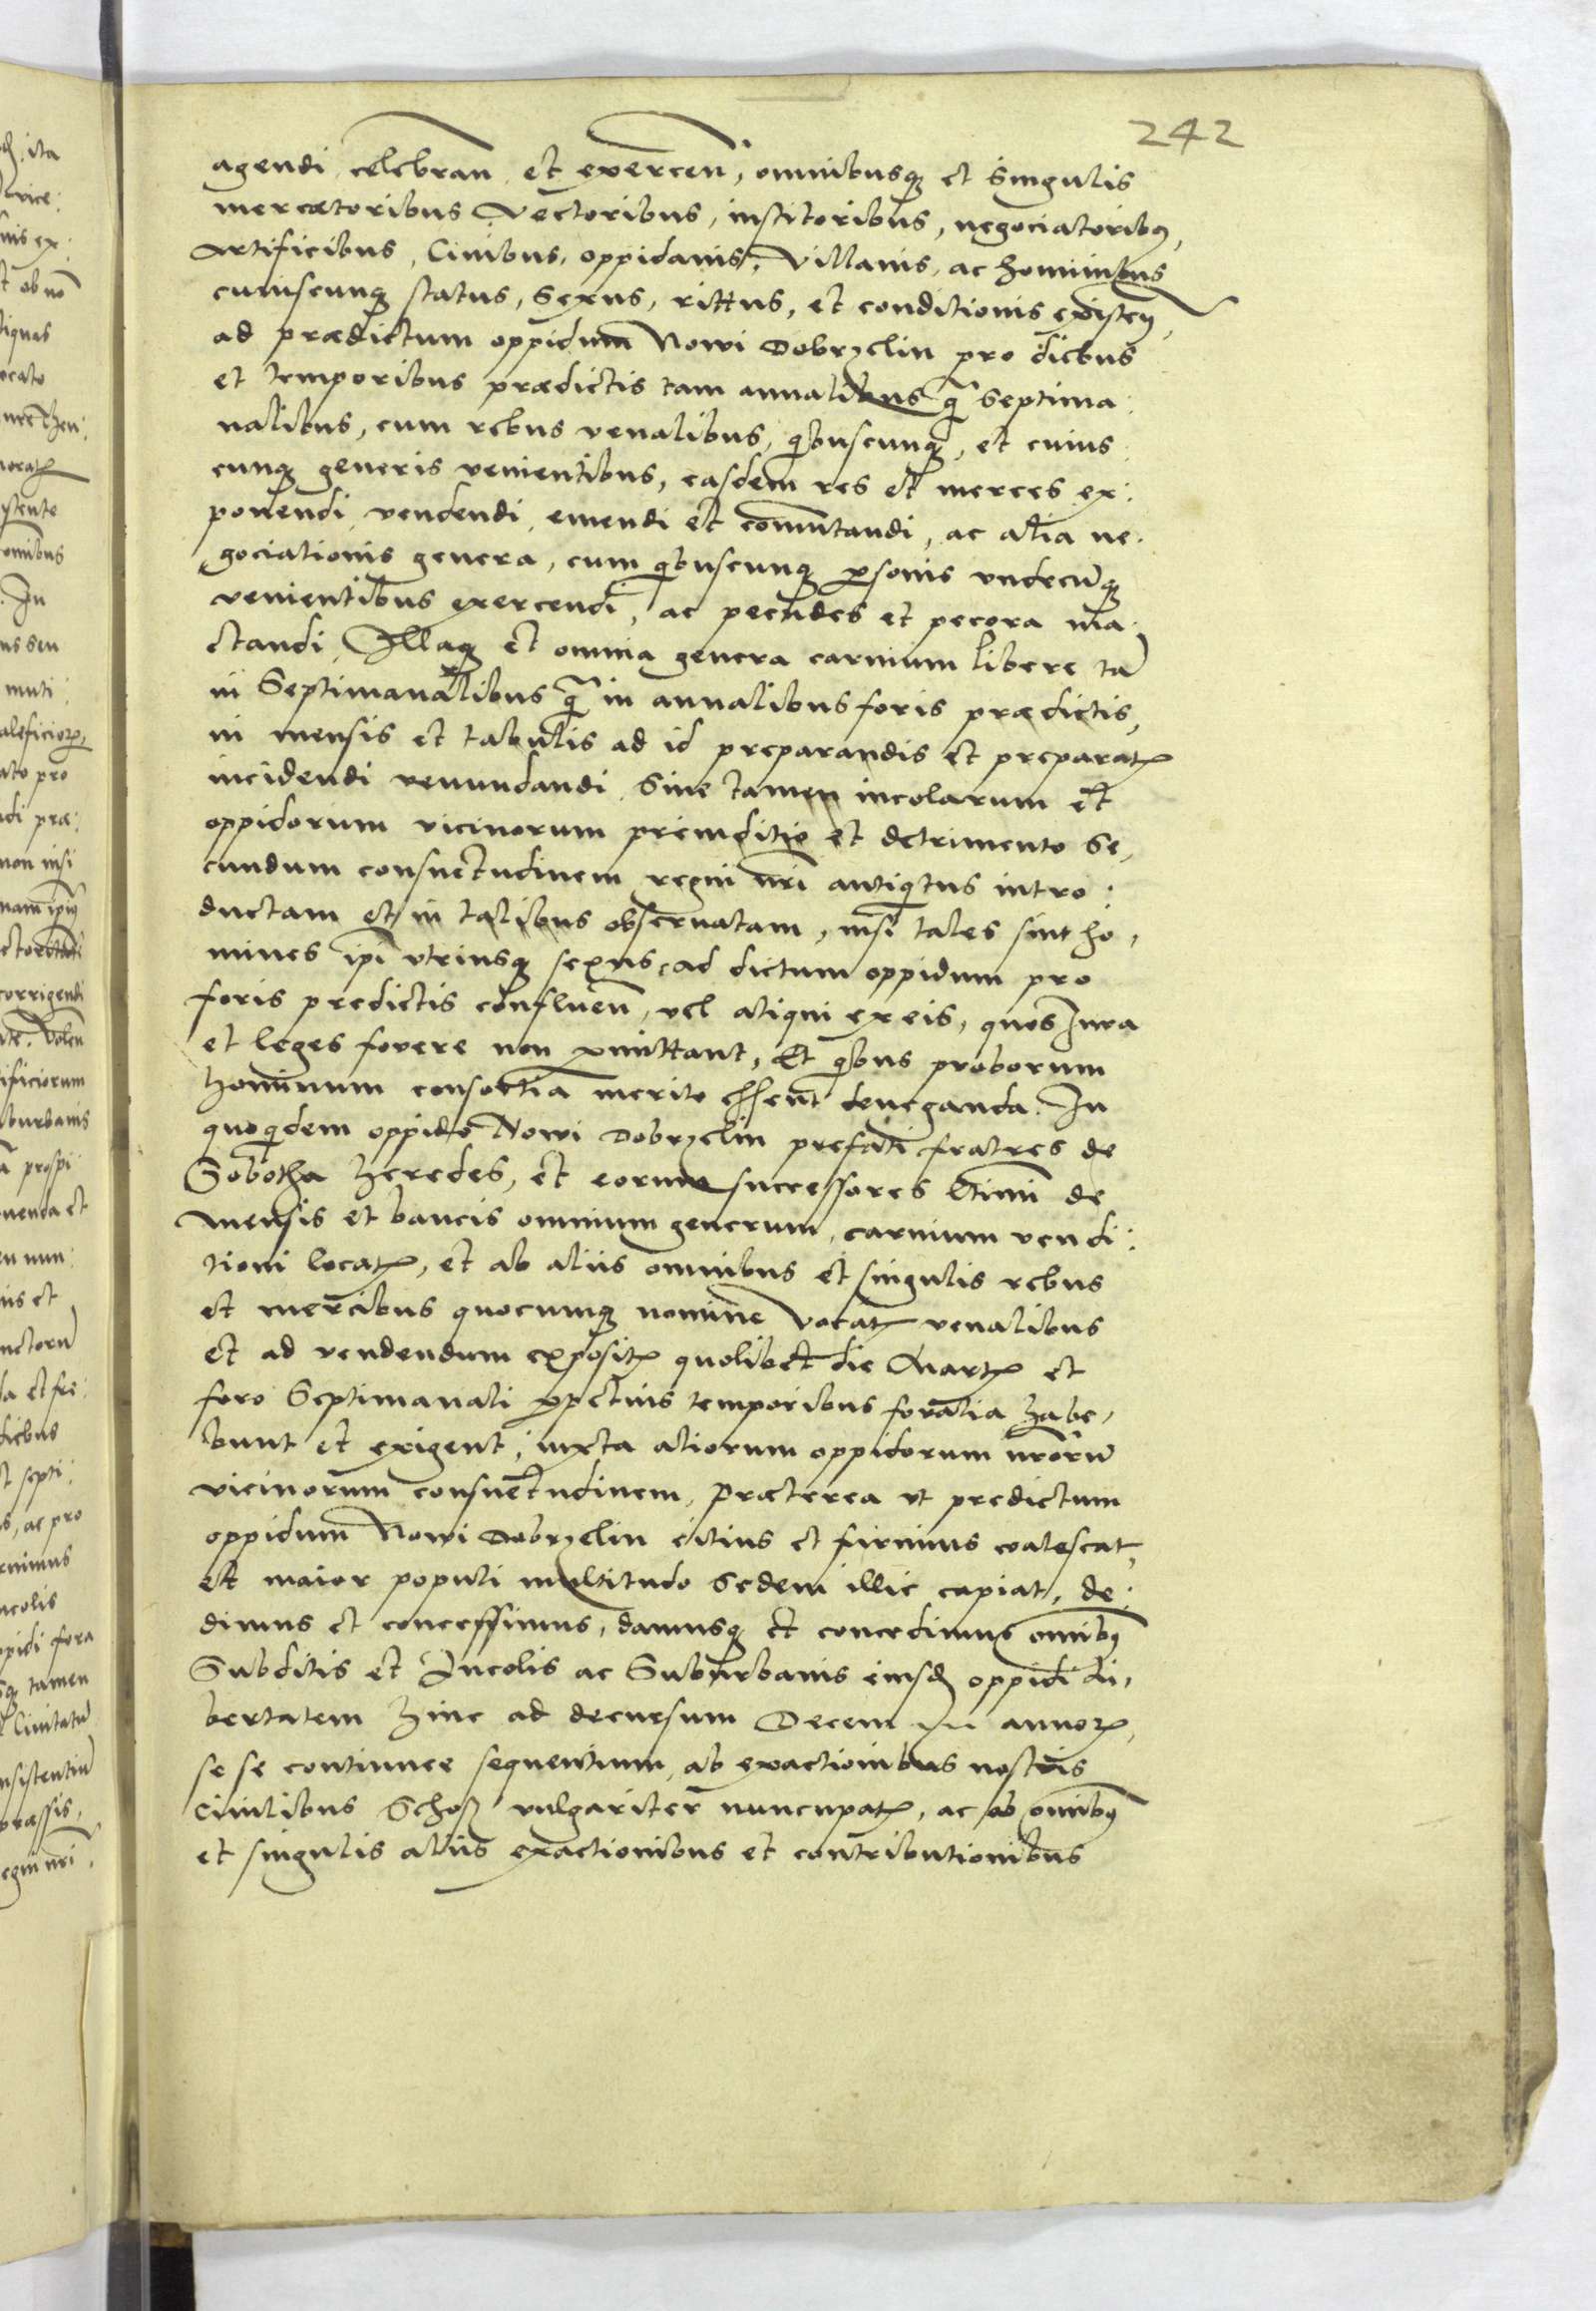 242
agendi, celebran̄ et exercen̄, omnibusq̃ et singulis
mercatoribus Vectoribus, institoribus, negociatoribꝰ,
Artificibus, Ciuibus, oppidanis, Villanis, ac hominibus
cuiuscunq̃ status, sexus, rittus, et conditionis existen̄,
ad prædictum oppidum Nowi Dobrzelin pro diebus
et temporibus prædictis tam annalibus q̃ septima:
nalibus, cum rebus venalibus, qibuscunq̃, et cuius
cunq̃ generis venientibus, easdem res et merces ex:
ponendi, vendendi, emendi et com̄utandi, ac alia ne:
gociationis genera, cum qibuscunq̃ ꝑsonis vndecūq̃
venientibus exercendi, ac pecudes et pecora ma:
ctandi, Illaq̃ et omnia genera carnium libere tā
in Septimanalibus q̃ in annalibus foris prædictis,
in mensis et tabulis ad id preparandis et preparatꝭ
incidendi venundandi, Sine tamen incolarum et
oppidorum vicinorum preiuditio et detrimento se,
cundum consuetudinem regni nr̄i antiqitus intro:
ductam et in talibus obseruatam, nisi tales sint ho,
mines ip̄i vtriusq̃ sexus, ad dictum oppidum pro
foris predictis confluen̄, vel aliqui ex eis, quos Iura
et leges fovere non ꝑmittant, Et qibus proborum
hominum consortia merito essent deneganda. In
quoqidem oppido Nowi Dobrzelin prefati fratres de
Sobotha heredes, et eorum successores l̄timi de
mensis et bancis omnium generum, carnium vendi:
tioni locatꝭ, et ab aliis omnibus et singulis rebus
et mercibus quocumq̃ nomine vocatꝭ venalibus
et ad vendendum expositꝭ quolibet die Martꝭ et
foro Septimanali ꝑpetuis temporibus foralia habe,
bunt et exigent, iuxta aliorum oppidorum nr̄orū
vicinorum consuetudinem, Præterea vt predictum
oppidum Nowi Dobrzelin citius et firmius coalescat,
et maior populi multitudo sedem illic capiat, de:
dimus et concessimus, damusq̃ et concedimus om̄ibꝰ
Subditis et Incolis ac Suburbanis eiusd̄ oppidi li,
bertatem hinc ad decursum Decem annorꝭ,
se se continuee sequentium, ab exactionibus nostris
Ciuilibus Schoß vulgariter nuncupatꝭ, ac ab om̄ibꝰ
et singulis aliis exactionibus et contributionibus